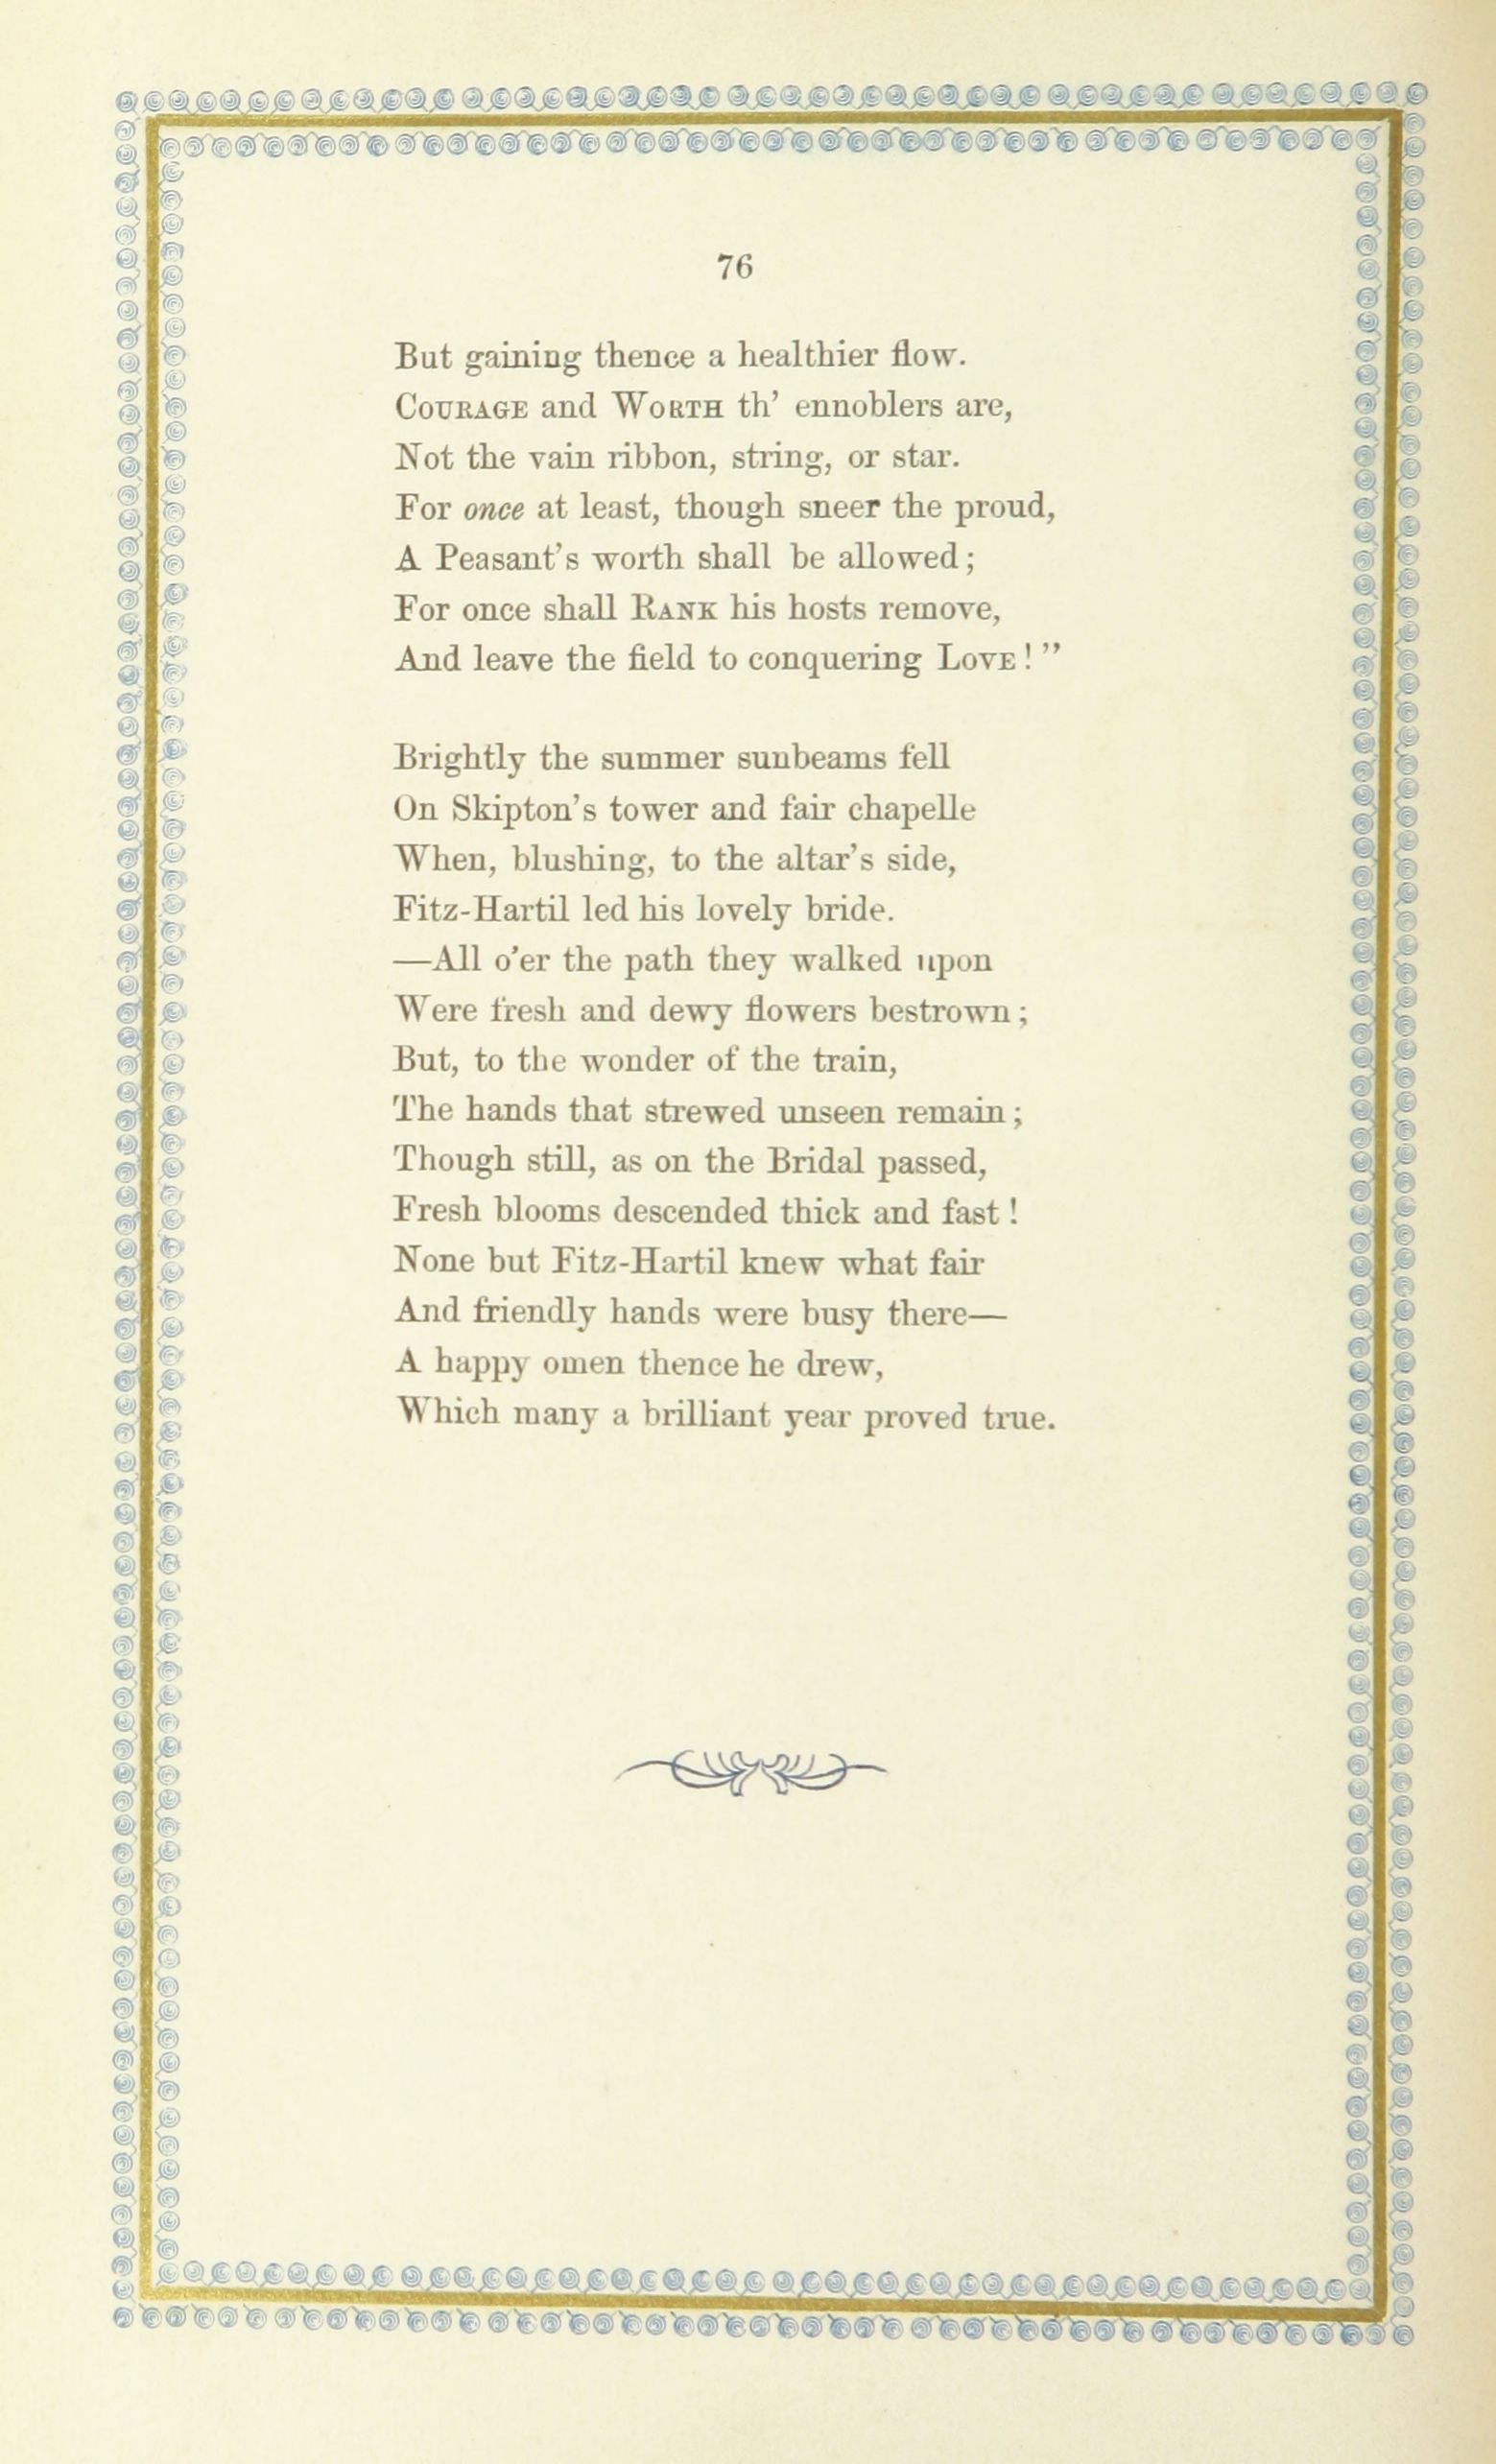 76
But gaining thence a healthier flow.
COURAGE and WORTH th' ennoblers are,
Not the vain ribbon, string, or star.
For once at least, though sneer the proud,
A Peasant's worth shall be allowed;
For once shall RANK his hosts remove,
And leave the field to conquering LOVE!"
Brightly the summer sunbeams fell
On Skipton's tower and fair chapelle
When, blushing, to the altar's side,
Fitz-Hartil led his lovely bride.
—All o'er the path they walked upon
Were fresh and dewy flowers bestrown;
But, to the wonder of the train,
The hands that strewed unseen remain;
Though still, as on the Bridal passed,
Fresh blooms descended thick and fast!
None but Fitz-Hartil knew what fair
And friendly hands were busy there—
A happy omen thence he drew,
Which many a brilliant year proved true.